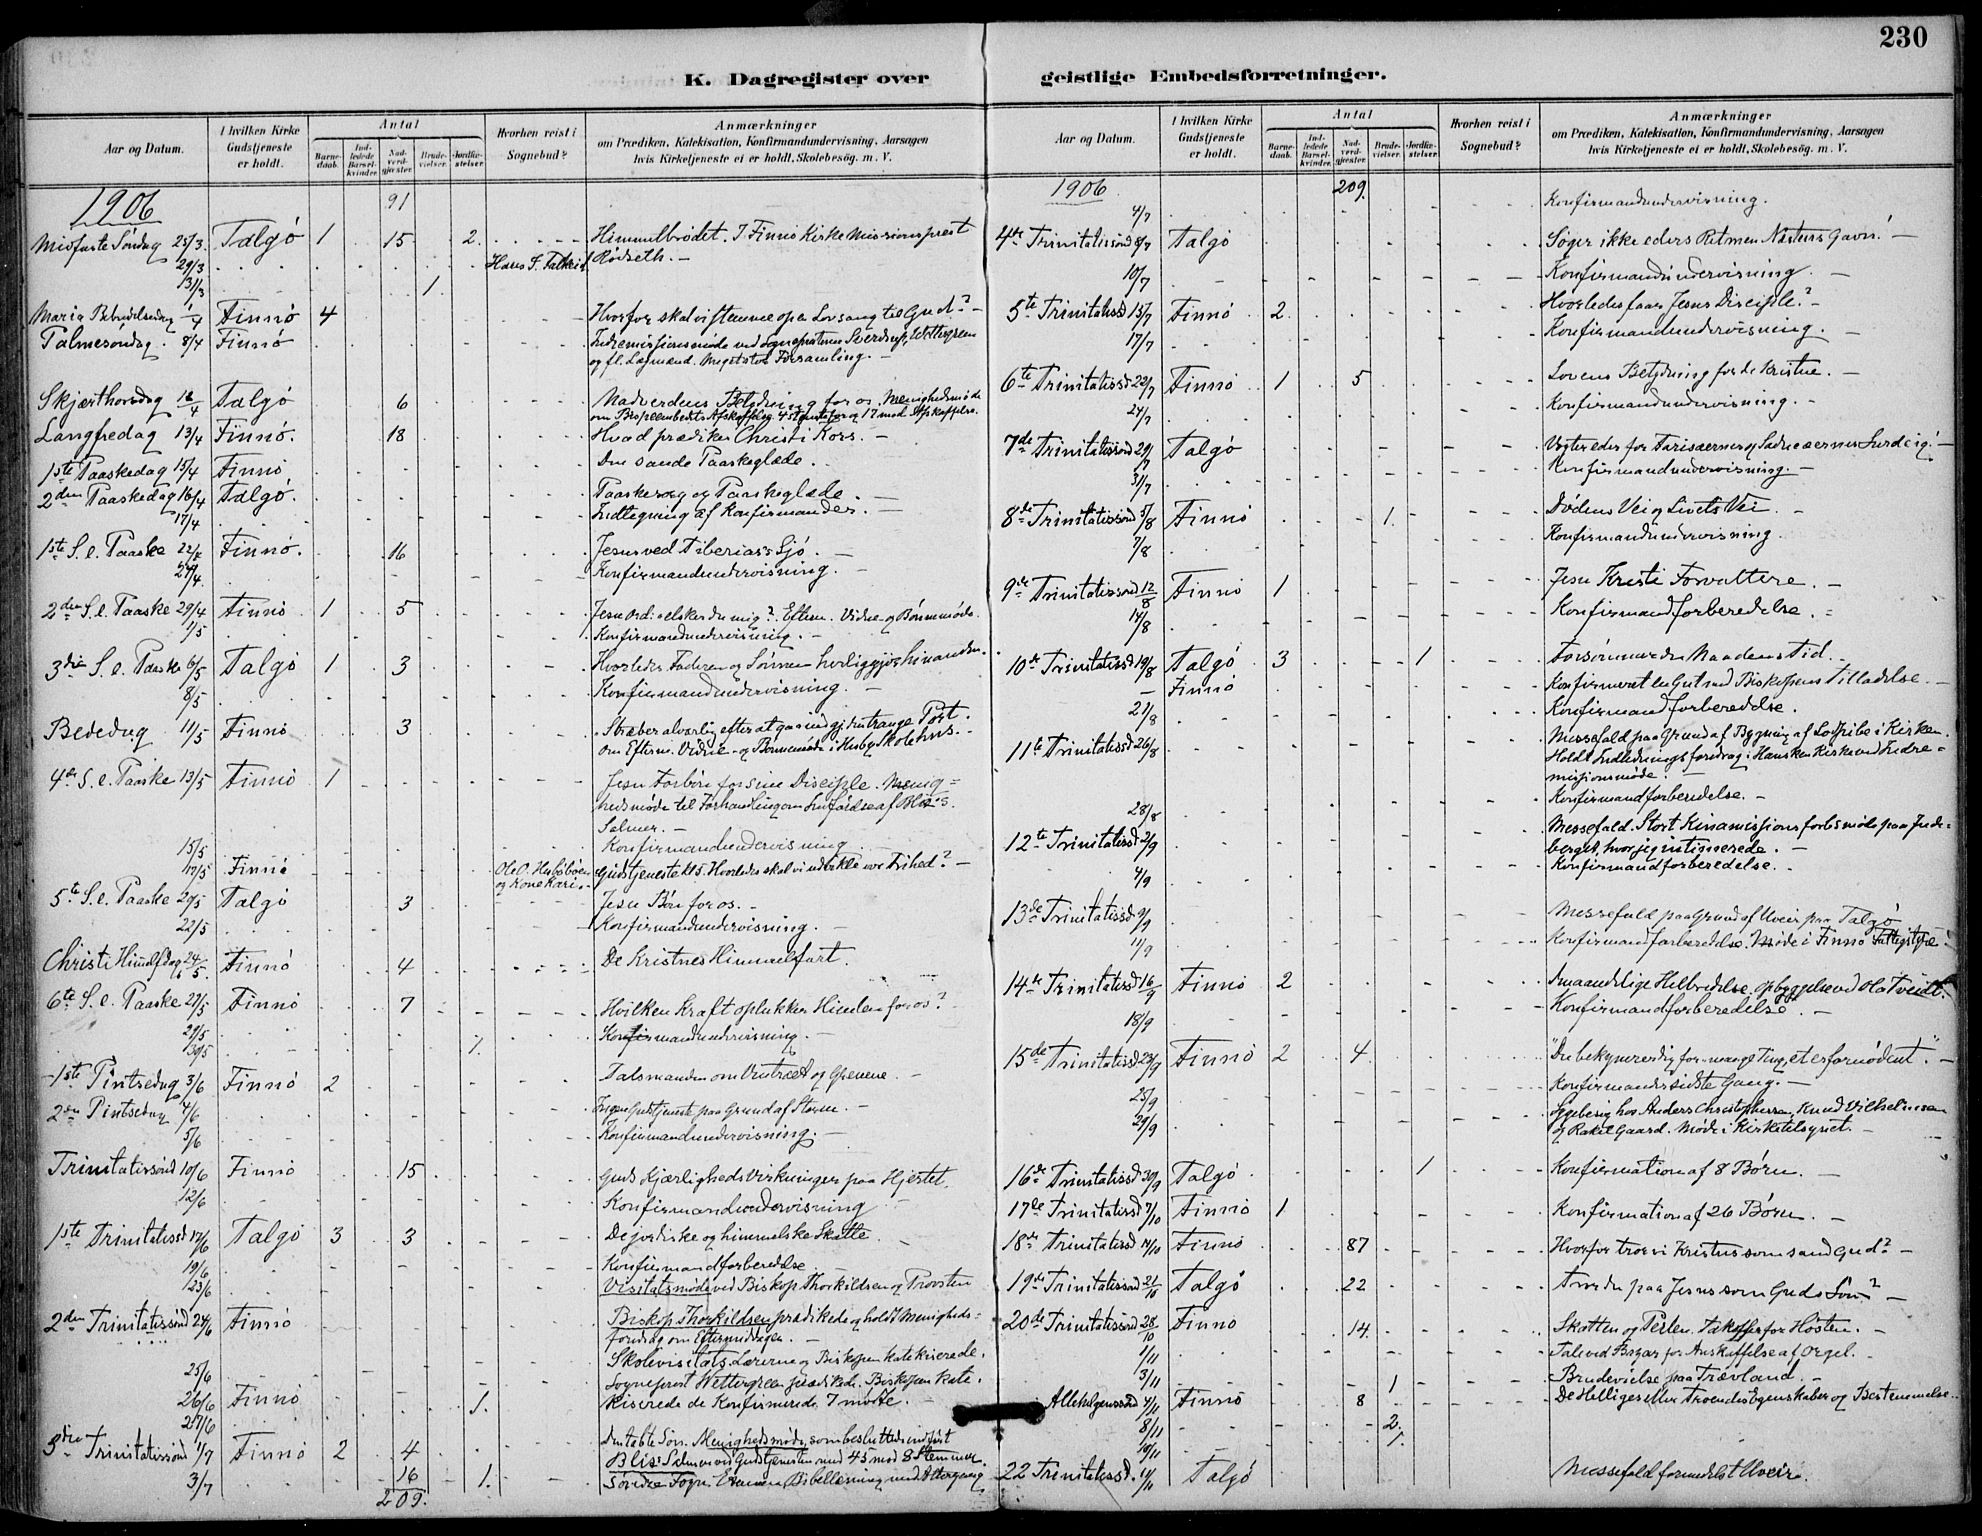 230
K. Dagregister over geistlige Embedsforretninger.
Aar og Datum.
I hvilken Kirke Gudstjeneste er holdt.
Antal
Barnedaab.
Indledede Barselkvinder.
Nadverdgjester.
Brudevielser.
Jordfæstelser.
Hvorhen reist i Sognebud?
Anmærkninger
om Prædiken, Katekisation, Konfirmandundervisning, Aarsagen
hvis Kirketjeneste ei er holdt, Skolebesøg. m. V.
1906 91
Midfaste Søndag 25/3 Talgø 1 15 2. Himmelbrødet. I Finnø Kirke Missionsprest
29/3 Rødseth. —
31/3 1.
Maria Bebudelsedag 1/4 Finnø 4 Hvorfor skal vi stemme op en Lovsang til Gud? —
Palmesøndag 8/4 Finnø Indremissionsmøde ved sognepresterne Sverdrup, Wettergreen
og fl. Lægmænd. Meget stor Forsamling. —
Skjærthorsdag 12/4 Talgø 6 Nadverdens Betydning for os. Menighedsmøde
Langfredag 13/4 Finnø. 18 Hvad prædiker Christi Kors. —
1ste Paaskedag 15/4 Finnø Den sande Paaskeglæde.
2den Paaskedag 16/4 Talgø. Paaskesorg og Paaskeglæde. —
17/4 Indtegning af Konfirmander. —
1ste S. e. Paaske 22/4 Finnø. 16 Jesus ved Tiberias's Sjø. —
24/4 Konfirmandundervisning. —
2den S. e. Paaske 29/4 Finnø 1 5 Jesu ord: elsker du mig? Efterm. Vidne- og Bønnemøde.
1/5 Konfirmandundervisning. —
3die S. e. Paaske 6/5 Talgø 1 3 Hvorledes Faderen og Sønnen herliggjør hinanden.
8/5 Konfirmandundervisning. —
Bededag 11/5 Finnø 3 Stræber alvorlig efter at gaa ind gj. den trange Port.
om Efterm. Vidne- og Bønnemøde i Husby Skolehus. —
4de S. e. Paaske 13/5 Finnø 1 Jesu Forbøn for sine Disciple. Menig=
hedsmøde til Forhandling om Indførelse af Blix's
Salmer. —
15/5 Konfirmandundervisning
17/5 Finnø Ole O. Husbøen og Kone Kari. Gudstjeneste kl 5. Hvorledes skal vi udvikle vor Frihed? —
5te S. e. Paaske 20/5 Talgø 3 Jesu Bøn for os. —
22/5 Konfirmandundervisning. —
Christi Himmelfdag 24/5 Finnø 4 De Kristnes Himmelfart.
6te S. e. Paaske 27/5 Finnø 7 Hvilken Kraft oplukker Himlen for os?
29/5 Konfirmandundervisning. —
30/5 1.
1ste Pintsedag 3/6 Finnø 2 Talsmanden om Vintræet og Grenene. —
2den Pintsedag 4/6 Ingen Gudstjeneste paa Grund af Storm. —
5/6 Konfirmandundervisning. —
Trinitatissønd 10/6 Finnø 15 Guds Kjærligheds Virkninger paa Hjertet.
12/6 Konfirmandundervisning
1ste Trinitatissd 17/6 Talgø 3 3 De jordiske og himmelske Skatte.
19/6 Konfirmandforberedelse
23/6 Visitatsmøde ved Biskop Thorkildsen og Provsten
2den Trinitatissønd 24/6 Finnø Biskop Thorkildsen prædikede og holdt Menigheds=
foredrag om Eftermiddagen. —
25/6 Skolevisitats. Lærerne og Biskopen katekiserede.
26/6 Finnø 1. Sogneprest Wettergreen prædikede. Biskopen kate.
27/6 kiserede de Konfirmerede. 7 mødte. —
3die Trinitatissønd 1/7 Finnø 2 4 Den tabte Søn. Menighedsmøde, som besluttede indført
16 1. Blix' Salmer ved Gudstjenesten med 45 mod 8 Stemmer.
3/7 209.
Aar og Datum.
I hvilken Kirke Gudstjeneste er holdt.
Antal
Barnedaab.
Indledede Barselkvinder.
Nadverdgjester.
Brudevielser.
Jordfæstelser.
Hvorhen reist i Sognebud?
Anmærkninger
om Prædiken, Katekisation, Konfirmandundervisning, Aarsagen
hvis Kirketjeneste ei er holdt, Skolebesøg. m. V.
1906 209.
4/7 Konfirmandundervisning.
4de Trinitatissønd 8/7 Talgø Søger ikke eders Ret men Næstens Gavn! —
10/7 Konfirmandundervisning. —
5te Trinitatissd 15/7 Finnø 2. Hvorledes faar Jesus Disciple? —
17/7 Konfirmandundervisning. —
6te Trinitatissd 22/7 Finnø 1 5 Lovens Betydning for de Kristne. —
24/7 Konfirmandundervisning. —
7de Trinitatissønd 29/7 Talgø Vogter eder for Farisæernes og Sadducæernes Surdeig! —
31/7 Konfirmandundervisning. —
8de Trinitatissønd 5/8 Finnø 1. Dødens Vei og Livets Vei. —
7/8 Konfirmandundervisning.
9de Trinitatissønd 12/8 Finnø 1 Jesu Kristi Forvaltere. —
14/8 Konfirmandforberedelse. =
10de Trinitatissd 19/8 Talgø 3 1 Forsøm ikke Naadens Tid. —
— Finnø Konfirmeret en Gut med Biskopens Tilladelse. —
21/8 Konfirmandforberedelse.
11te Trinitatissd 26/8 Messefald paa Grund af Bygning af Loftribe i Kirken.
Holdt Indledningsforedrag i Hauskeu Kirke ved Indre=
missionsmøde. —
28/8 Konfirmandforberedelse. —
12te Trinitatissd 2/9 Messefald. Stort Kinamissions forbs møde paa Jude-
berget, hvor jeg intimerede. —
4/9 Konfirmandforberedelse. —
13de Trinitatissd 9/9 Messefald paa Grund af Uveir paa Talgø
11/9 Konfirmandforberedelse. Møde i Finnø Fattigstyre. —
14de Trinitatissd 16/9 Finnø 2 Aandelige Helbredelse. Opbyggelse ved Ola Tveidt. —
18/9 Konfirmandforberedelse. —
15de Trinitatissønd 23/9 Finnø 2 4. "Du bekymrer dig for mange Ting, et er fornødent." —
25/9 Konfirmander sidste Gang. —
29/9 Sygebesøg hos Anders Christophersen, Knud Vilhelmsen
og Rakel Gaard. Møde i Kirketilsynet. —
16de Trinitatissd 30/9 Talgø 1 Konfirmation af 8 Børn. —
17de Trinitatissd 7/10 Finnø 1 Konfirmation af 26 Børn. —
18de Trinitatissd 14/10 Finnø 87 Hvorfor tror vi Kristus som sand Gud? —
19de Trinitatissønd 21/10 Talgø 22 Tror du paa Jesus som Guds Søn? —
20de Trinitatissønd 28/10 Finnø 14. Skatten og Perlen. Takoffer for Høsten. —
1/11 Tale ved Bazar for Anskaffelse af Orgel. —
3/11 1 Brudevielse paa Trævland. —
Allehelgenssønd 4/11 Finnø 8 De Helliges eller Troendes Egenskaber og Bestemmelse.
8/11 2.
10/11 1.
22 Trinitatissd. 11/10 Talgø Messefald formedelst Uveir.